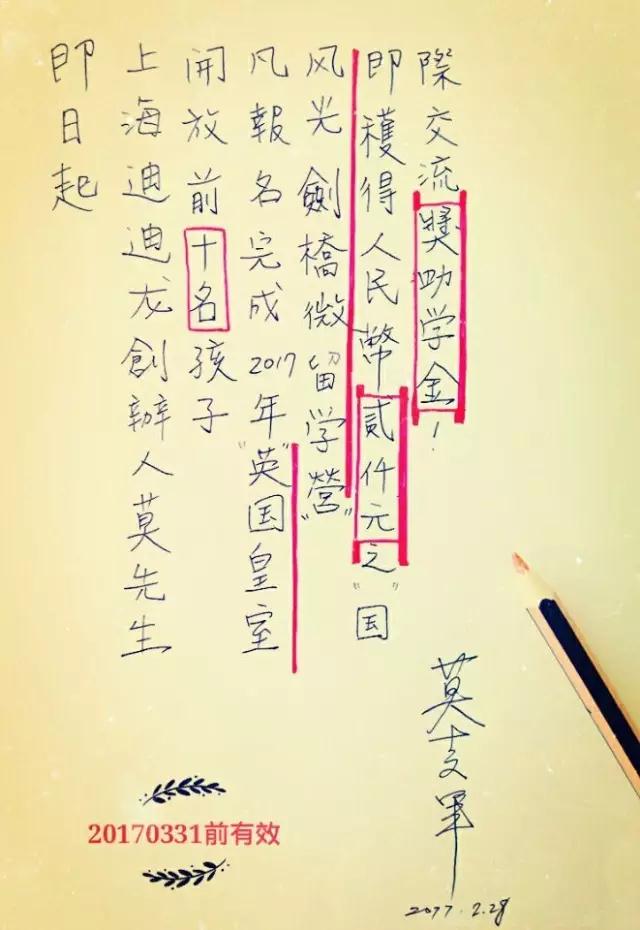 即日起
上海迪迪龙創辦人莫先生
開放前十名孩子
凡報名完成2017年"英国皇室
风光劍橋微留学營"
即獲得人民幣貳仟元之"国
際交流獎助学金!
莫軍
2017.2.28
20170331前有效